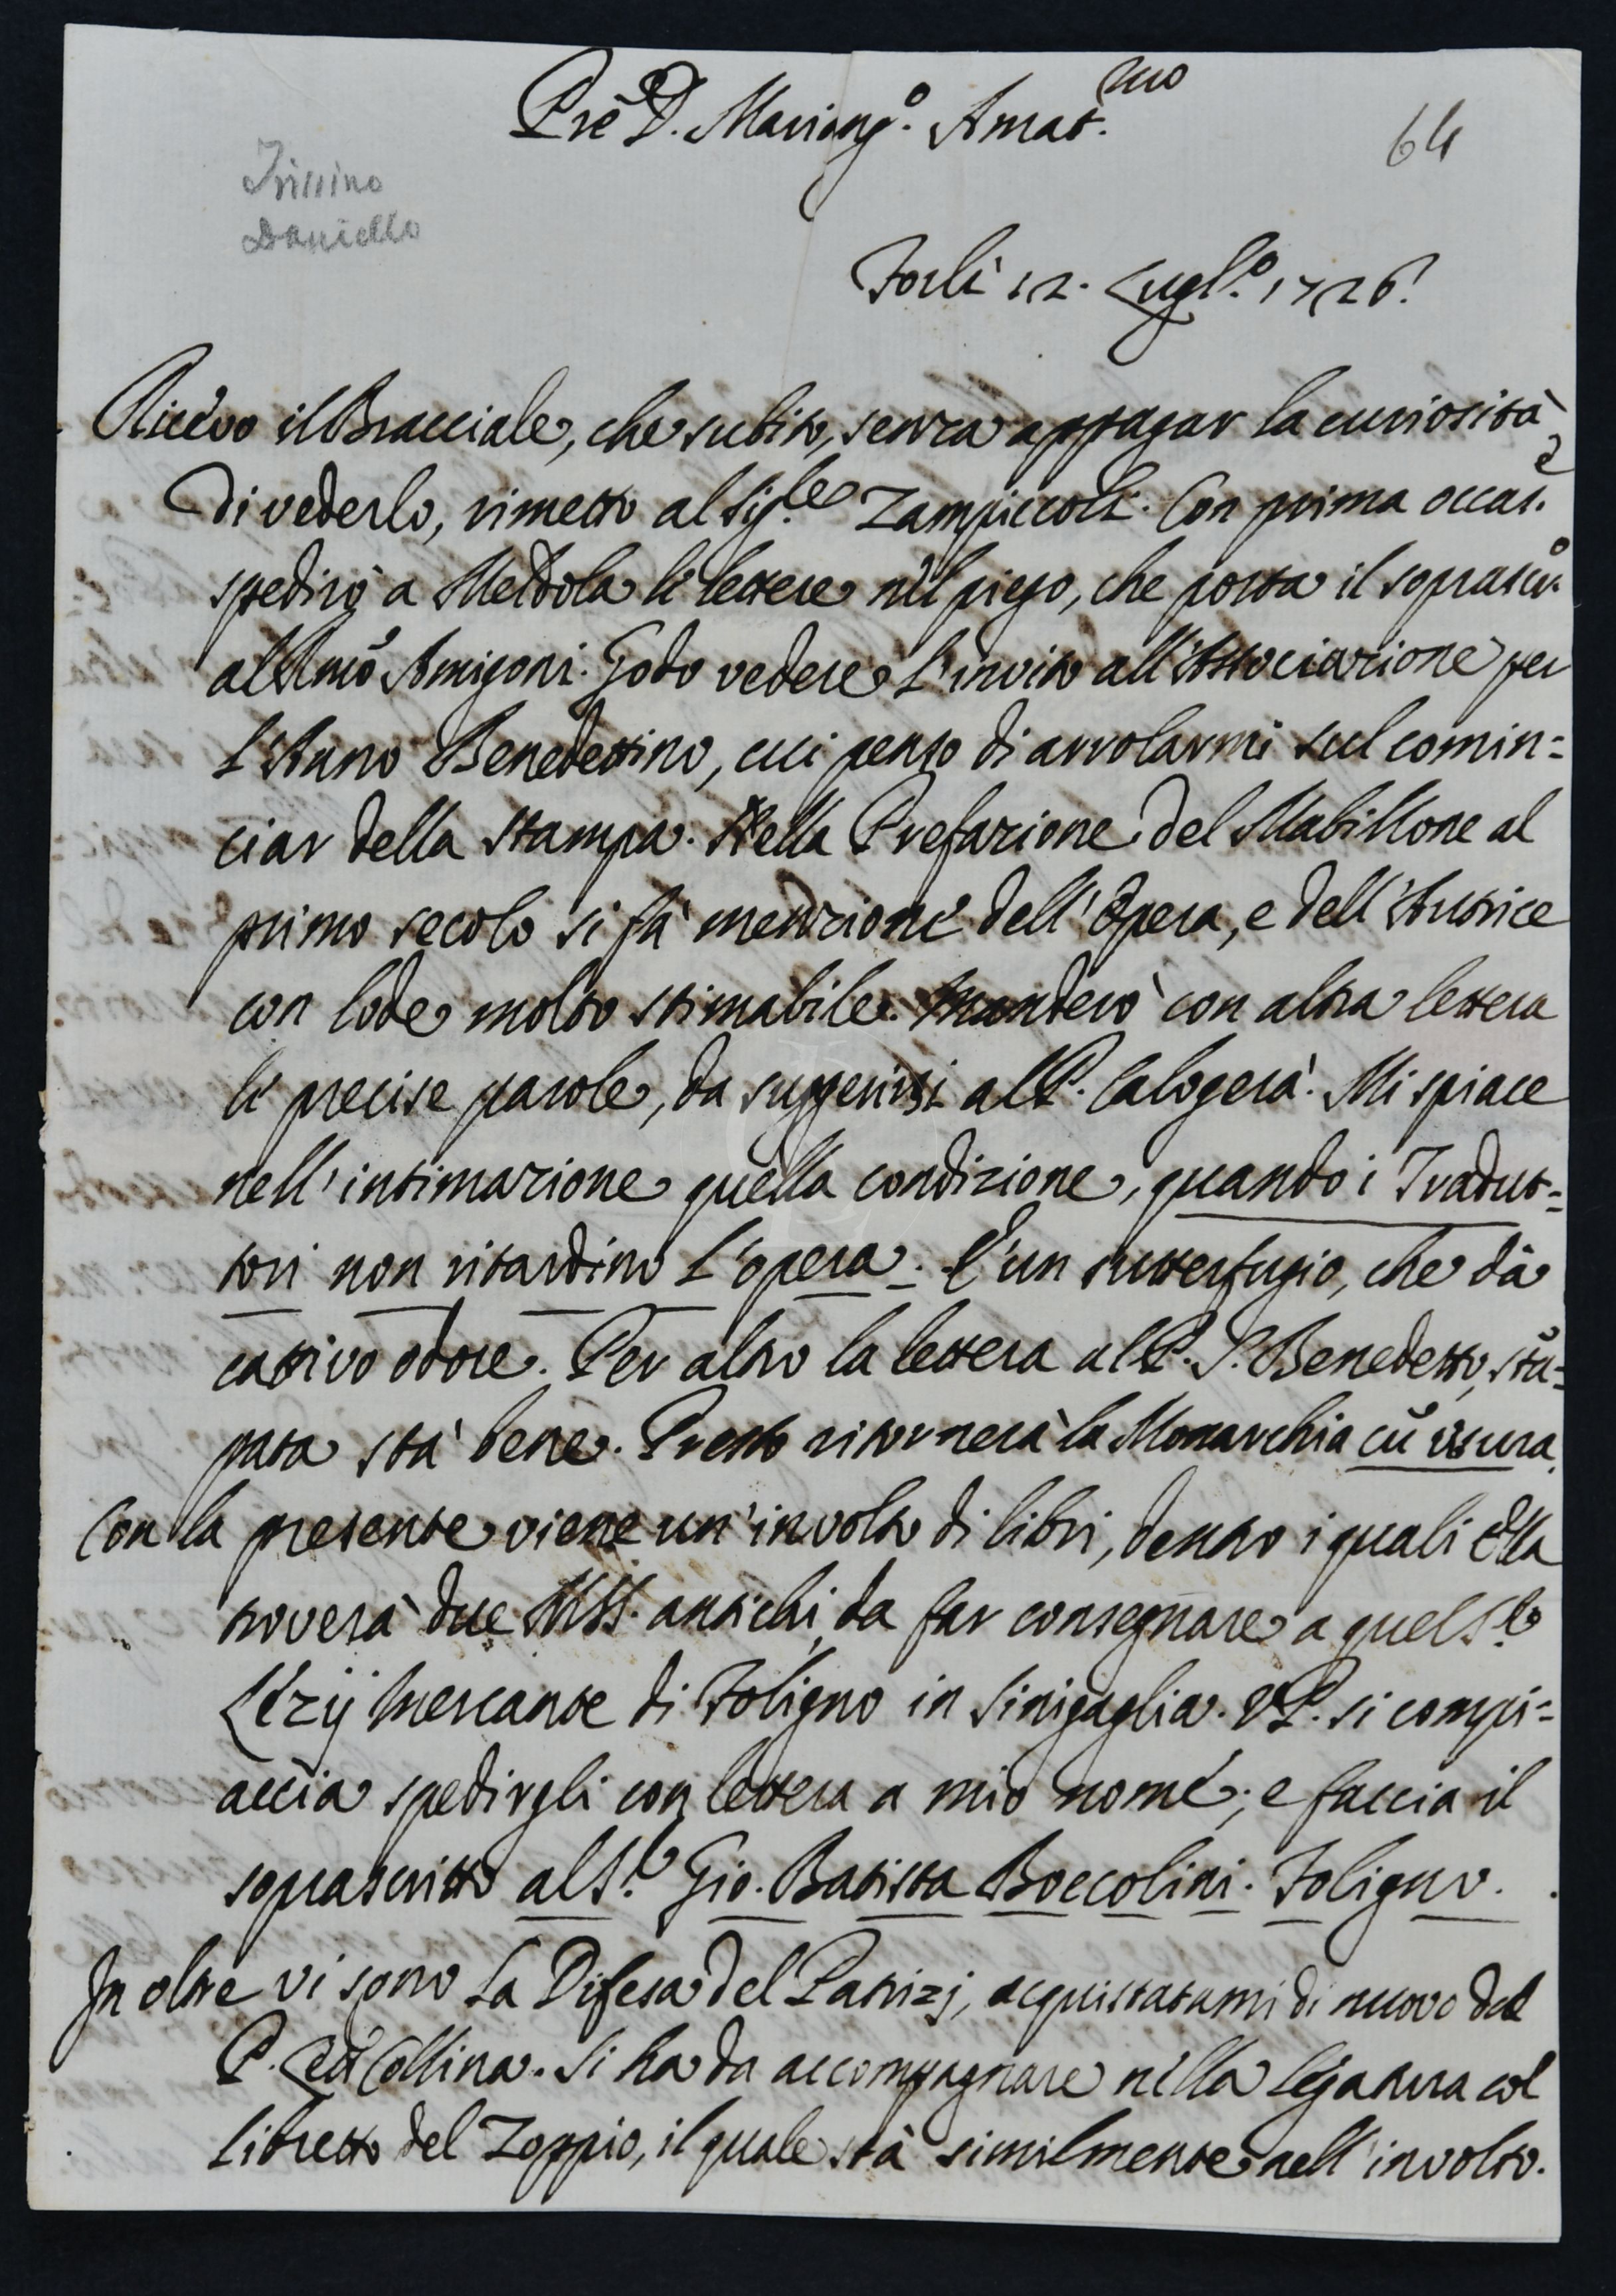 Prē D. Mariang.º Amat.mo
64
Trissino
Daniello
Forlì 12. Lugl.º 1726.
Ricevo il Bracciale, che subito, senza appagar la curiosità
di vederlo, rimetto al Sig.le Zampiccoli. Con prima occas.e
spedirò a Meldola le lettere nel piego, che porta il soprascr.º
all'Amō Amigoni. Godo vedere l'invito all'Associazione per
l'Anno Benedettino, cui penso di arrolarmi sul comin=
ciar della stampa. Nella Prefazione del Mabillone al
primo secolo si fà menzione dell'Opera, e dell'Autrice
con lode molto stimabile. Manderò con altra lettera
le precise parole, da suggerirsi al P. Calogerà. Mi spiace
nell'intimazione quella condizione, quando i Tradut=
tori non ritardino l'opera. È un sutterfugio, che dà
cattivo odore. Per altro la lettera al P. S. Benedetto, stā=
pata stà bene. Presto ritornerà la Monarchia cū usura.
Con la presente viene un'involto di libri, dentro i quali Ella
troverà due MSS. antichi, da far consegnare a quel S.le
Lezij Mercante di Foligno in Sinigaglia. VP. si compi=
accia spedirgli con lettera a mio nome; e faccia il
soprascritto al S.le Gio. Batista Boccolini. Foligno.
In oltre vi sono La Difesa del Patrizj, acquistatami di nuovo dal
P. Let Collina. Si ha da accompagnare nella legatura col
libretto del Zoppio, il quale stà similmente nell'involto.